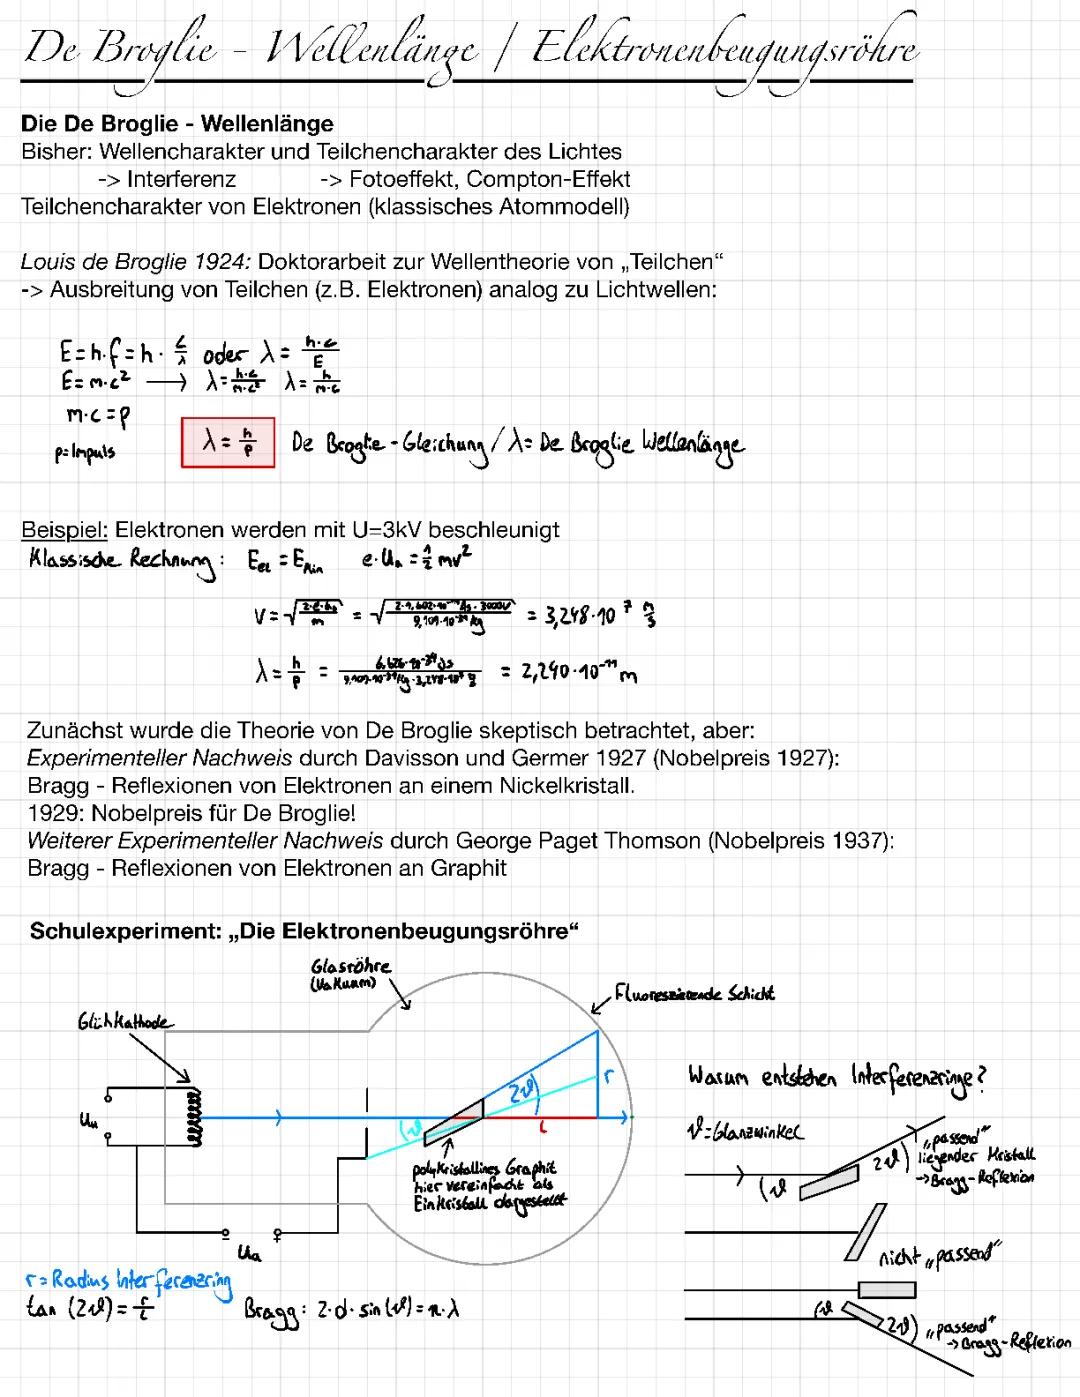 De Broglie - Wellenlänge / Elektronenbeugungsröhre
Die De Broglie - Wellenlänge
Bisher: Wellencharakter und Teilchencharakter des Lichtes
-> Interferenz -> Fotoeffekt, Compton-Effekt
Teilchencharakter von Elektronen (klassisches Atommodell)
Louis de Broglie 1924: Doktorarbeit zur Wellentheorie von „Teilchen“
-> Ausbreitung von Teilchen (z.B. Elektronen) analog zu Lichtwellen:
E=h·f=h·c/λ oder λ=h·c/E
E=m·c² → λ=h·c/m·c² λ=h/m·c
m·c=p
p=Impuls
λ=h/p De Broglie-Gleichung/λ=De Broglie Wellenlänge
Beispiel: Elektronen werden mit U=3kV beschleunigt
Klassische Rechnung: E_el = E_kin e·Uₐ=½mv²
V=√(2·e·Uₐ/m) = √(2·1,602·10⁻¹⁹As·3000V/9,109·10⁻³¹kg) = 3,248·10⁷ m/s
λ=h/p = 6,626·10⁻³⁴Js/9,109·10⁻³¹kg·3,248·10⁷m/s = 2,240·10⁻¹¹m
Zunächst wurde die Theorie von De Broglie skeptisch betrachtet, aber:
Experimenteller Nachweis durch Davisson und Germer 1927 (Nobelpreis 1927):
Bragg - Reflexionen von Elektronen an einem Nickelkristall.
1929: Nobelpreis für De Broglie!
Weiterer Experimenteller Nachweis durch George Paget Thomson (Nobelpreis 1937):
Bragg - Reflexionen von Elektronen an Graphit
Schulexperiment: „Die Elektronenbeugungsröhre“
Glasröhre
(Vakuum)
Fluoreszierende Schicht
Glühkathode
Uₕ
2ϑ
r
ϑ
L
polykristallines Graphit
hier vereinfacht als
Einkristall dargestellt
Uₐ
r=Radius Interferenzring
tan (2ϑ)=r/L Bragg: 2·d·sin(ϑ)=n·λ
Warum entstehen Interferenzringe?
ϑ=Glanzwinkel
ϑ 2ϑ „passend“
liegender Kristall
→Bragg-Reflexion
nicht „passend“
ϑ 2ϑ „passend“
→Bragg-Reflexion